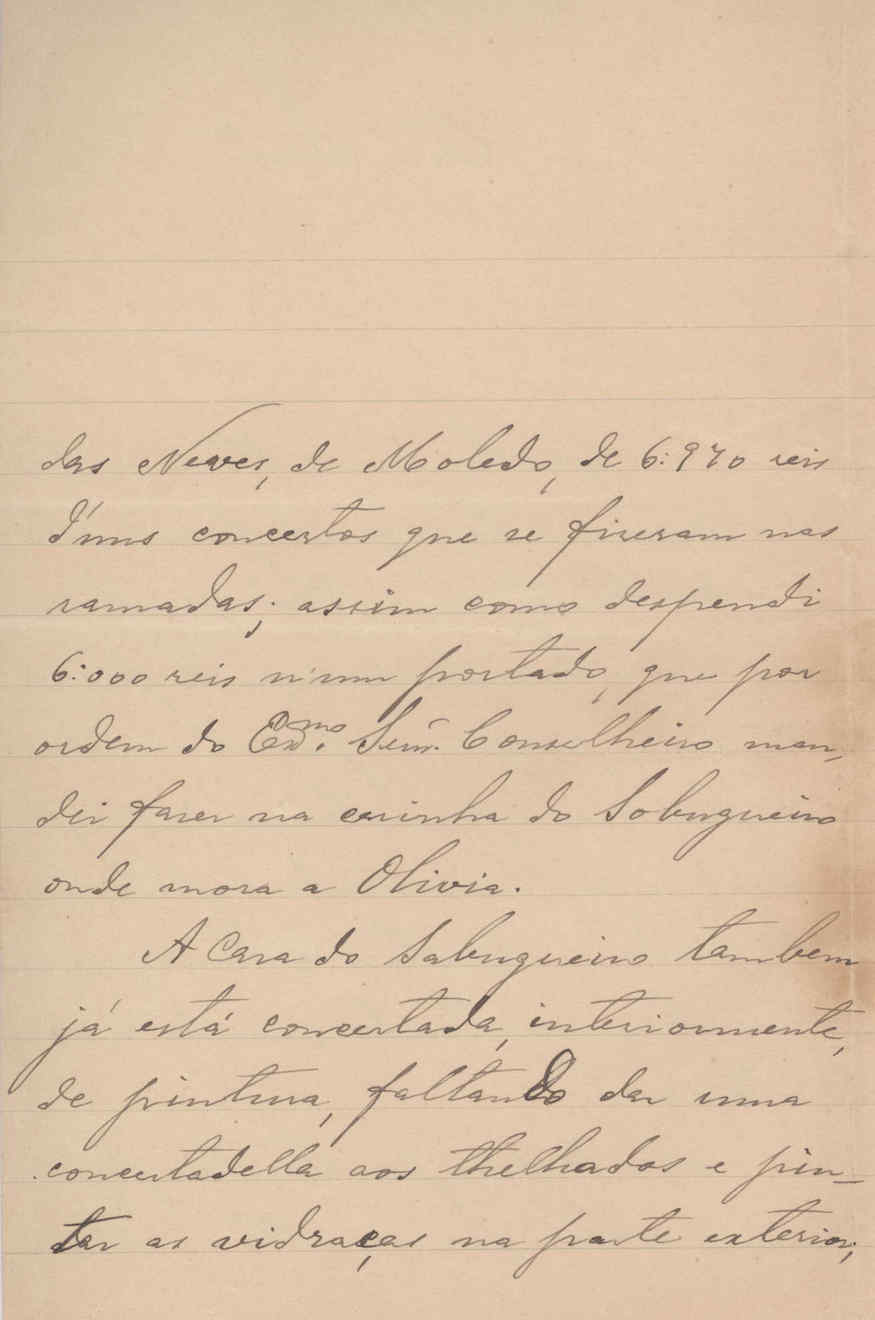 das Neves, de Moledo, de 6:970 reis
d'uns concertos que se fizeram nas
ramadas; assim como despendi
6:000 reis n'um portado, que por
ordem do Exmo. Snr. Conselheiro man-
dei fazer na casinha do Sobugueiro
onde mora a Olivia.
A Casa do Sabugueiro tambem
já está concertada, interiormente,
de pintura, faltando dar uma
concertadella aos thelhados e pin-
tar as vidraças na parte exterior;